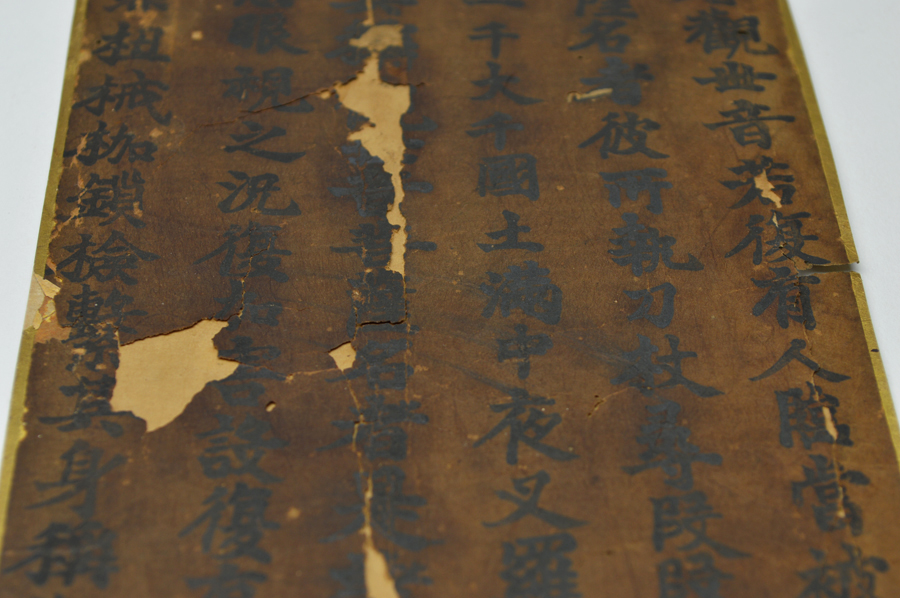 觀世音若復有人臨當被
薩名者彼所執刀杖尋段段
千大千國土滿中夜叉羅
名者是
眼視之況復加害設復
杻械枷鎖撿繫其身稱